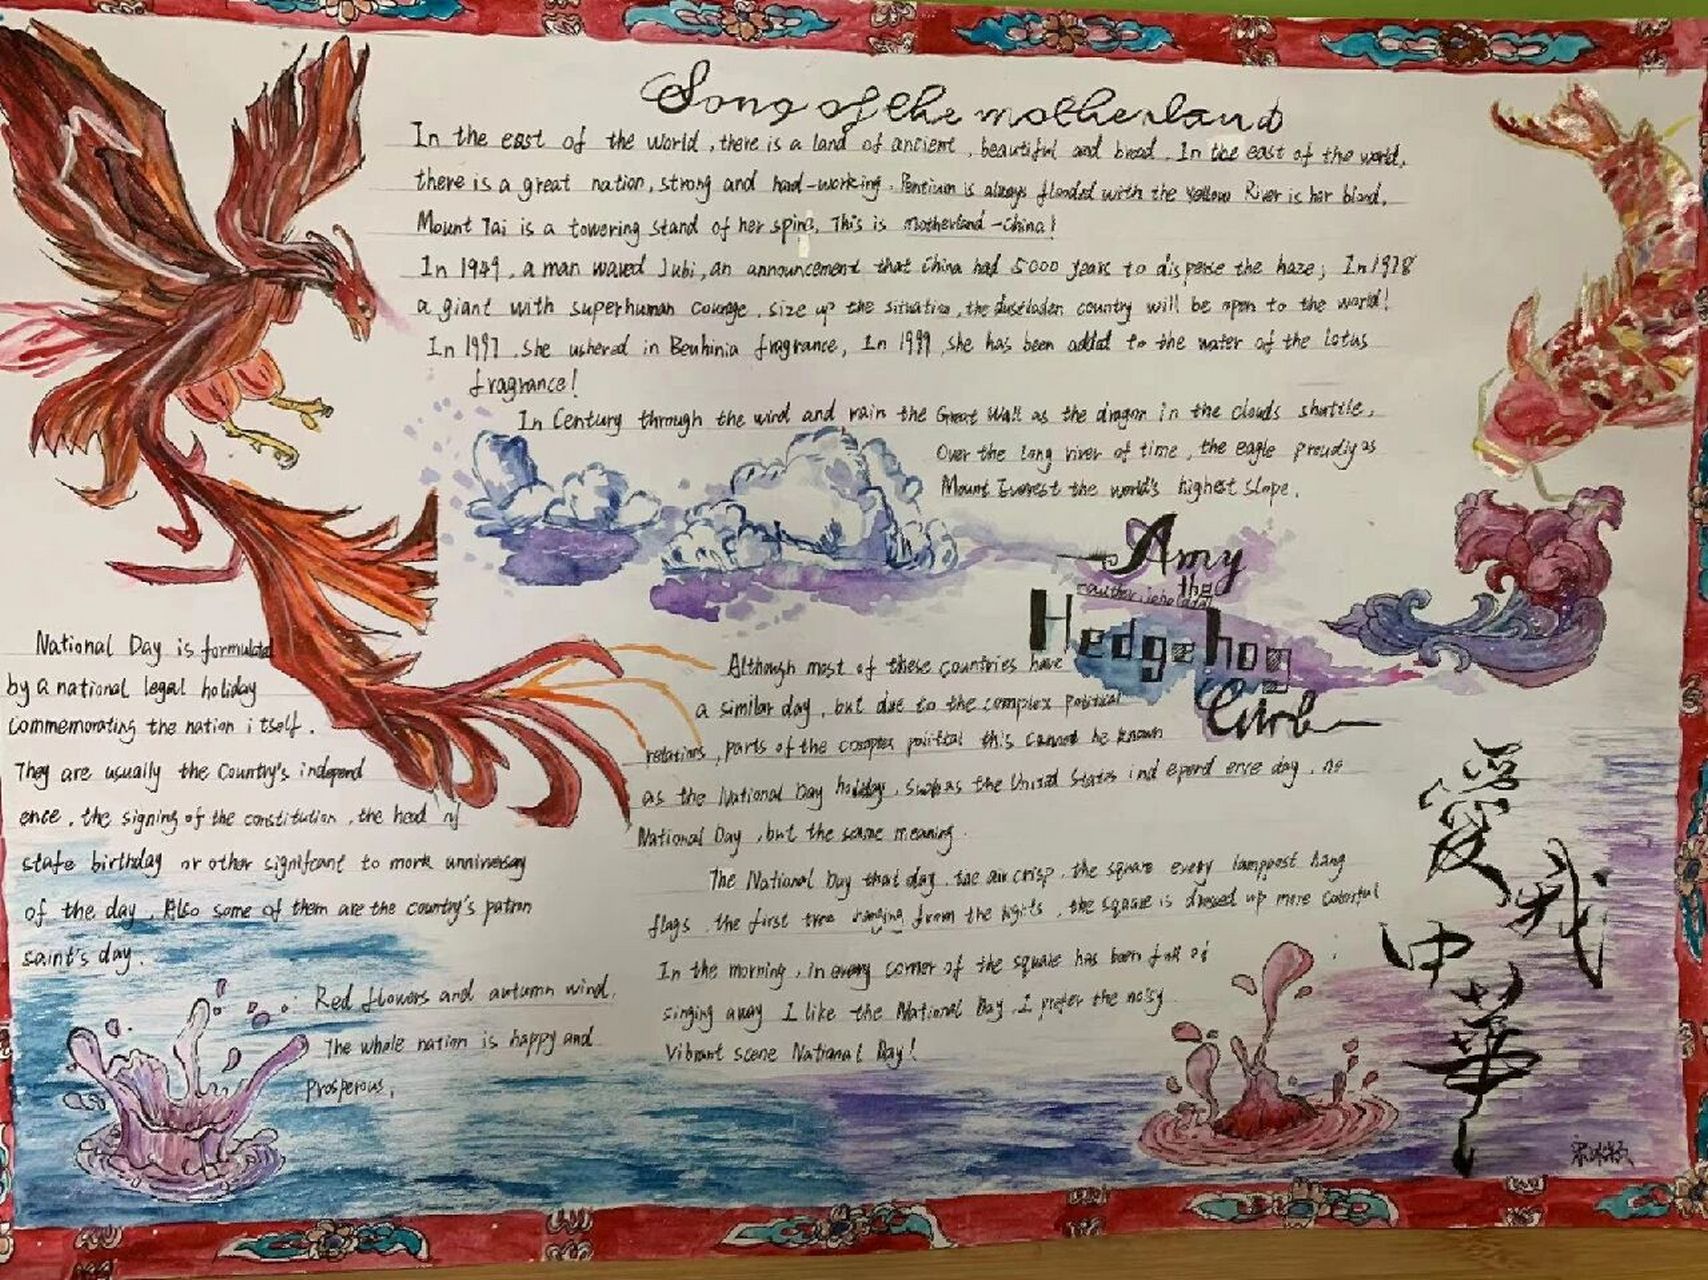 Song of the motherland
In the east of the world, there is a land of ancient, beautiful and broad. In the east of the world,
there is a great nation, strong and hard-working. Pentium is always flooded with the Yellow River is her bland,
Mount Tai is a towering stand of her spine, This is Motherland -China!
In 1949, a man waved Jubi, an announcement that China had 5000 years to disperse the haze; In 1978
a giant with superhuman courage, size up the situation, the dustladen country will be open to the world!
In 1997, she ushered in Beuhinia fragrance, In 1999, she has been added to the water of the lotus
fragrance!
In Century through the wind and rain the Great Wall as the dragon in the clouds shuttle,
Over the long river of time, the eagle proudly as
Mount Everest the world's highest slope.
Amy
the
Hedgehog
National Day is formulated
by a national legal holiday
Commemorating the nation itself.
They are usually the Country's independ
ence, the signing of the constitution, the head of
state birthday or other signifcant to mark anniversay
of the day, Also some of them are the country's patron
saint's day.
Red flowers and autumn wind,
The whole nation is happy and
prosperous,
Although most of these countries have
a similar day, but due to the complex political
relations, parts of the complex political this cannot be known
as the National Day holiday, such as the United States independence day, no
National Day, but the same meaning.
The National Day that day, the air crisp, the square every lamppost hang
flags, the first tree hanging from the lights, the square is dressed up more colorful
In the morning, in every corner of the square has been full of
singing away I like the National Day, I prefer the noisy
Vibrant scene National Day!
愛我
中華